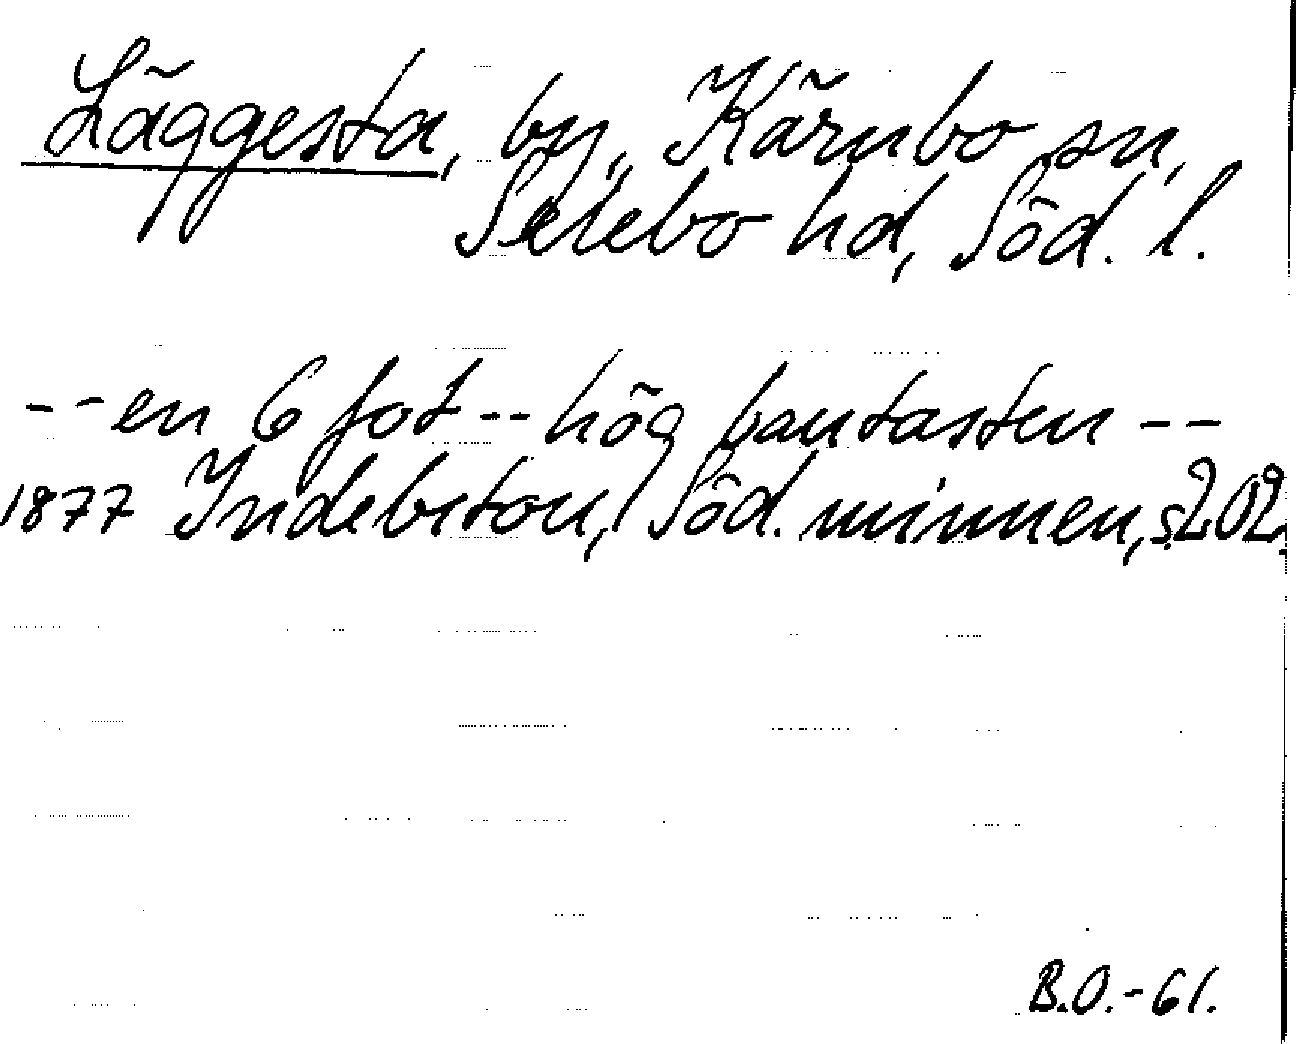 Läggesta, by, Kärnbo sn,
Selebo hd, Söd. l.
--en 6 fot--hög bautasten--
1877 Indebetou, Söd. minnen, s.202.
B.O.-61.